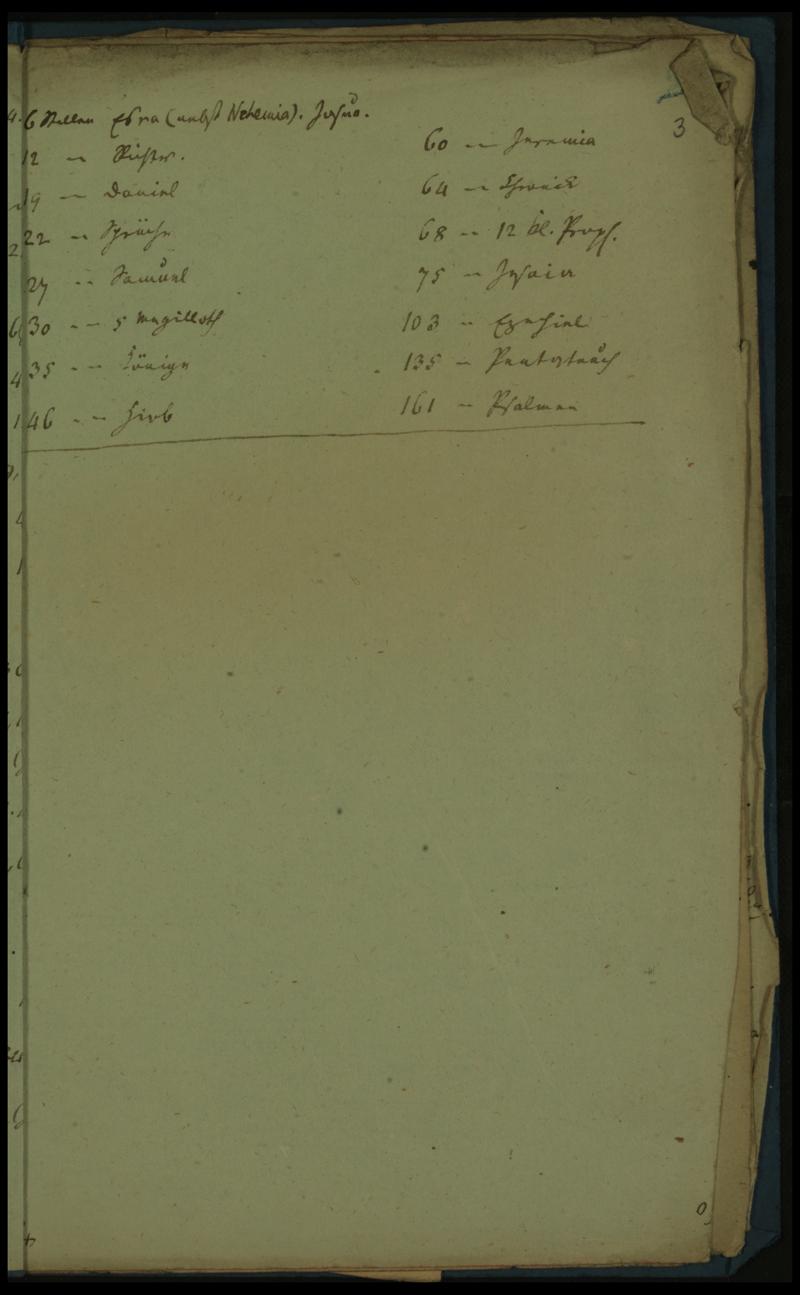 3
6 Stellen Esra (nebst Nehemia). Josua.
12 — Richter.
19 — Daniel
22 — Sprüche
27 — Samuel
30 — 5 Megilloth
35 — Könige
46 — Hiob
60 — Jeremia
64 — Chronik
68 — 12 kl. Proph.
75 — Jesaia
103 — Ezechiel
135 — Pentateuch
161 — Psalmen